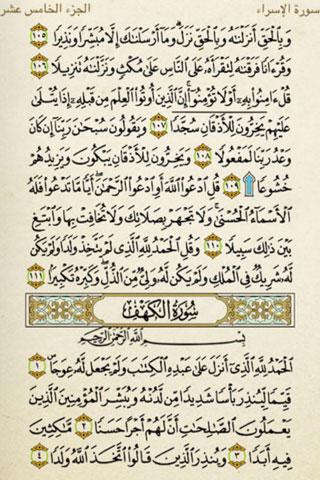 سورة الإسراء
الجزء الخامس عشر
وَبِالْحَقِّ أَنزَلْنَاهُ وَبِالْحَقِّ نَزَلَ ۗ وَمَا أَرْسَلْنَاكَ إِلَّا مُبَشِّرًا وَنَذِيرًا ١٠٥
وَقُرْءَانًا فَرَقْنَاهُ لِتَقْرَأَهُ عَلَى النَّاسِ عَلَىٰ مُكْثٍ وَنَزَّلْنَاهُ تَنزِيلًا ١٠٦
قُلْ ءَامِنُوا بِهِ أَوْ لَا تُؤْمِنُوا ۚ إِنَّ الَّذِينَ أُوتُوا الْعِلْمَ مِن قَبْلِهِ إِذَا يُتْلَىٰ
عَلَيْهِمْ يَخِرُّونَ لِلْأَذْقَانِ سُجَّدًا ١٠٧ وَيَقُولُونَ سُبْحَانَ رَبِّنَا إِن كَانَ
وَعْدُ رَبِّنَا لَمَفْعُولًا ١٠٨ وَيَخِرُّونَ لِلْأَذْقَانِ يَبْكُونَ وَيَزِيدُهُمْ
خُشُوعًا ١٠٩ قُلِ ادْعُوا اللَّهَ أَوِ ادْعُوا الرَّحْمَٰنَ ۖ أَيًّا مَّا تَدْعُوا فَلَهُ
الْأَسْمَاءُ الْحُسْنَىٰ ۚ وَلَا تَجْهَرْ بِصَلَاتِكَ وَلَا تُخَافِتْ بِهَا وَابْتَغِ
بَيْنَ ذَٰلِكَ سَبِيلًا ١١٠ وَقُلِ الْحَمْدُ لِلَّهِ الَّذِي لَمْ يَتَّخِذْ وَلَدًا وَلَمْ يَكُن
لَّهُ شَرِيكٌ فِي الْمُلْكِ وَلَمْ يَكُن لَّهُ وَلِيٌّ مِّنَ الذُّلِّ ۖ وَكَبِّرْهُ تَكْبِيرًا ١١١
سُورَةُ الْكَهْفِ
بِسْمِ اللَّهِ الرَّحْمَٰنِ الرَّحِيمِ
الْحَمْدُ لِلَّهِ الَّذِي أَنزَلَ عَلَىٰ عَبْدِهِ الْكِتَابَ وَلَمْ يَجْعَل لَّهُ عِوَجًا ١
قَيِّمًا لِّيُنذِرَ بَأْسًا شَدِيدًا مِّن لَّدُنْهُ وَيُبَشِّرَ الْمُؤْمِنِينَ الَّذِينَ
يَعْمَلُونَ الصَّالِحَاتِ أَنَّ لَهُمْ أَجْرًا حَسَنًا ٢ مَّاكِثِينَ
فِيهِ أَبَدًا ٣ وَيُنذِرَ الَّذِينَ قَالُوا اتَّخَذَ اللَّهُ وَلَدًا ٤